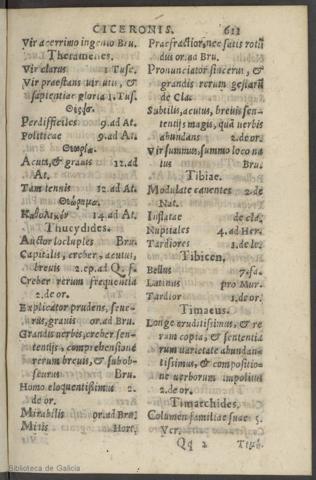 CICERONIS. 611
Vir acerrimo ingenio Bru.
Theramenes.
Vir clarus 1 Tusc.
Vir praestans uirtute, &
sapientiae gloria 1. Tus.
Perdifficiles 9. ad At.
Politicae 9. ad At.
Acuta, & grauis 12. ad
At.
Tam tennis 12. ad At.
Καθολικόν 14. ad At.
Thucydides.
Auctor locuples Bru.
Capitalis, creber, acutus,
breuis 2. ep. ad Q. f.
Creber rerum frequentia
2. de or.
Explicator prudens, seue-
rus, grauis or. ad Bru.
Grandis uerbis, creber sen-
tentijs, comprehensione
rerum breuis, & subob-
scurus Bru.
Homo eloquentißimus 2.
de or.
Mirabilis or. ad Bru.
Mitis Hort.
Praefractior, nec satis rotū
dus or. ad Bru.
Pronunciator sincerus, &
grandis rerum gestarū
de Cla.
Subtilis, acutus, breuis, sen-
tentijs magis, quā uerbis
abundans 2. de or.
Vir summus, summo loco na
tus Bru.
Tibiae.
Modulate canentes 2. de
Nat.
Inflatae de cla.
Nuptiales 4. ad Her.
Tardiores 1. de le.
Tibicen.
Bellus 7. fa.
Latinus pro Mur.
Tardior 1. de or.
Timaeus.
Longe eruditißimus, & re
rum copia, & sententia
rum uarietate abundan-
tißimus, & compositio-
ne uerborum impolitus
2. de or.
Timarchides.
Columen familiae suae 5.
Ver.
Qq 2 Timo.
Biblioteca de Galicia